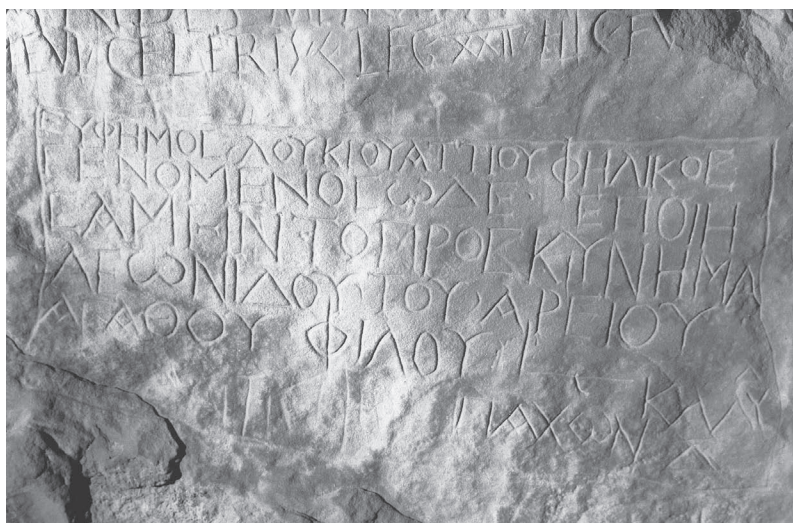 CELERIS LEG
ΕΥΦΗΜΟΣ ΛΟΥΚΙΟΥ ΑΤΤΙΟΥ ΦΗΛΙΚΟΣ
ΓΕΝΟΜΕΝΟΣ ΩΔΕ ΕΠΟΙΗ
ΣΑΜΗΝ ΤΟ ΠΡΟΣΚΥΝΗΜΑ
ΛΕΩΝΙΔΟΥ ΤΟΥ ΑΡΕΙΟΥ
ΑΓΑΘΟΥ ΦΙΛΟΥ
ΠΑΧΩΝ